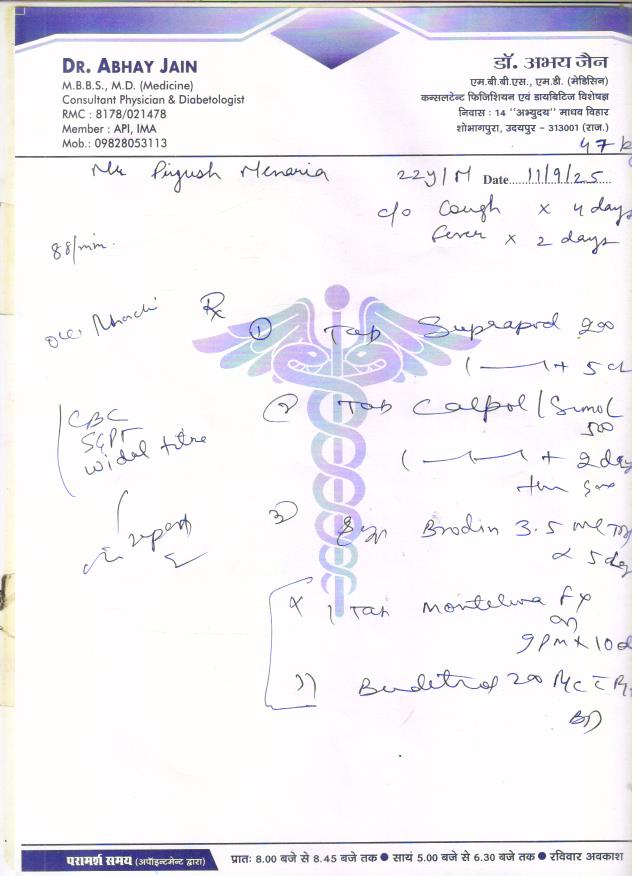 DR. ABHAY JAIN
M.B.B.S., M.D. (Medicine)
Consultant Physician & Diabetologist
RMC : 8178/021478
Member : API, IMA
Mob.: 09828053113
डॉ. अभय जैन
एम.बी.बी.एस., एम.डी. (मेडिसिन)
कन्सलटेन्ट फिजिशियन एवं डायबिटिज विशेषज्ञ
निवास : 14 "अभ्युदय" माघव विहार
शोभागपुरा, उदयपुर - 313001 (राज.)
47 k
Mr Piyush Menaria 22y/M Date 11/9/25
c/o Cough x 4 days
Fever x 2 days
88/min.
Rx
① Tab 200
+ 5 d
② Tab Calpol / Sumol
500
+ 2 day
CBC
SGPT
Widal titre
report
3) Syp Brodin 3.5 ml
x 5 day
Tab Montelura Fx
9pm x 10d
200
BD
परामर्श समय (अपॉइन्टमेन्ट द्वारा) प्रातः 8.00 बजे से 8.45 बजे तक ● सायं 5.00 से 6.30 बजे तक ● रविवार अवकाश